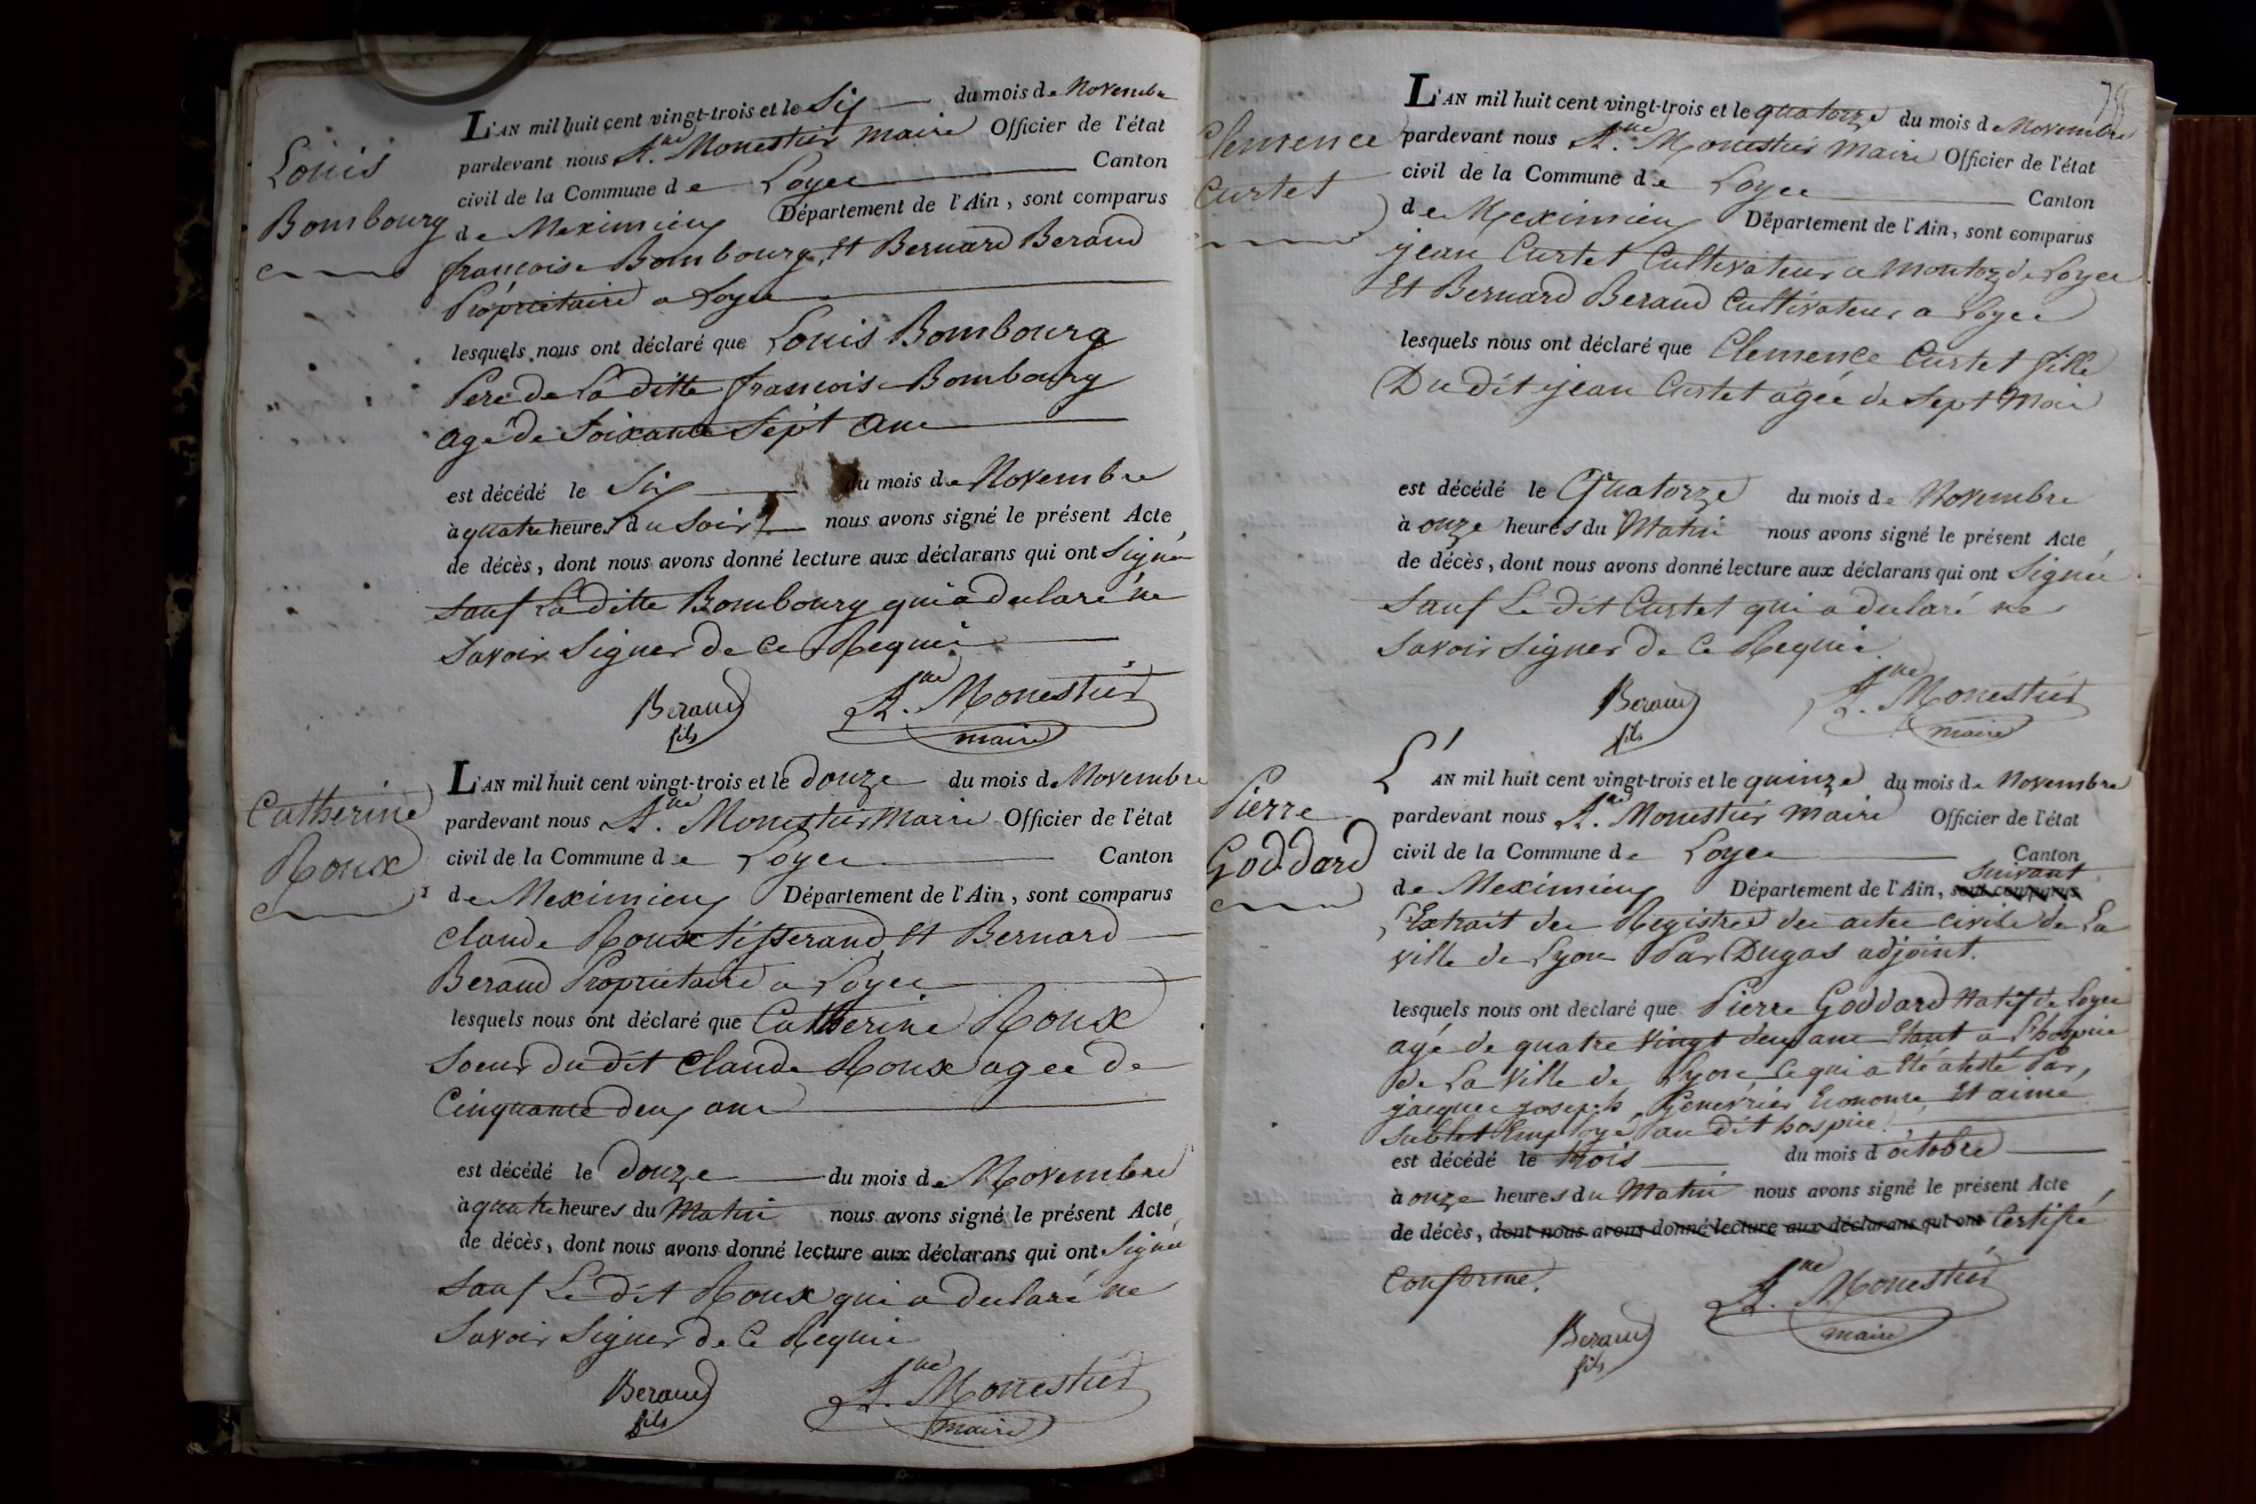 Louis
Bombourg
L'AN mil huit cent vingt-trois et le Six du mois de Novembre
pardevant nous A.ne Monestier maire Officier de l'état
civil de la Commune de Loyer Canton
de Meximieux Département de l'Ain, sont comparus
francoise Bombourg, Et Bernard Beraud
Propriétaire a Loyer
lesquels nous ont déclaré que Louis Bombourg
Pere de La ditte francoise Bombourg
agé de Soixante Sept ans
est décédé le Six du mois de Novembre
à quatre heures du Soir nous avons signé le présent Acte
de décès, dont nous avons donné lecture aux déclarans qui ont Signé
Sauf La ditte Bombourg qui a declaré ne
Savoir Signer de Ce Requis
Beraud A.ne Monestier
fils maire
Catherine
Roux
L'AN mil huit cent vingt-trois et le douze du mois de Novembre
pardevant nous A.ne Monestier Maire Officier de l'état
civil de la Commune de Loyer Canton
de Meximieux Département de l'Ain, sont comparus
Claude Roux tisserand Et Bernard
Beraud Propriétaire a Loyer
lesquels nous ont déclaré que Catherine Roux
Soeur du dit Claude Roux agee de
Cinquante deux ans
est décédé le douze du mois de Novembre
à quatre heures du Matin nous avons signé le présent Acte
de décès, dont nous avons donné lecture aux déclarans qui ont Signé
Sauf Le dit Roux qui a declaré ne
Savoir Signer de Ce Requis
Beraud A.ne Monestier
fils maire
Clemence
Curtet
L'AN mil huit cent vingt-trois et le quatorze du mois de Novembre
pardevant nous A.ne Monestier maire Officier de l'état
civil de la Commune de Loyer Canton
de Meximieux Département de l'Ain, sont comparus
jean Curtet Cultivateur a Montoz de Loyer
Et Bernard Beraud Cultivateur a Loyer
lesquels nous ont déclaré que Clemence Curtet fille
Du dit jean Curtet agée de Sept Mois
est décédé le Quatorze du mois de Novembre
à onze heures du Matin nous avons signé le présent Acte
de décès, dont nous avons donné lecture aux déclarans qui ont Signée
Sauf Le dit Curtet qui a declaré ne
Savoir Signer de Ce Requis
Beraud A.ne Monestier
fils maire
Pierre
Goddard
L'AN mil huit cent vingt-trois et le quinze du mois de Novembre
pardevant nous A.ne Monestier maire Officier de l'état
civil de la Commune de Loyer Canton
suivant
de Meximieux Département de l'Ain, sont comparus
L'Extrait des Registres des actes civils de La
ville de Lyon Par Dugas adjoint.
lesquels nous ont déclaré que Pierre Goddard Natif de Loyer
agé de quatre vingt deux ans Etant a l'hospice
de La Ville de Lyon Ce qui a Eté atesté Par,
jacques joseph Genevrier Econome, Et aimé
Sublet Employé au dit hospice.
est décédé le trois du mois d'octobre
à onze heures du Matin nous avons signé le présent Acte
de décès, dont nous avons donné lecture aux déclarans qui ont Certifié
Conforme.
Beraud A.ne Monestier
fils maire